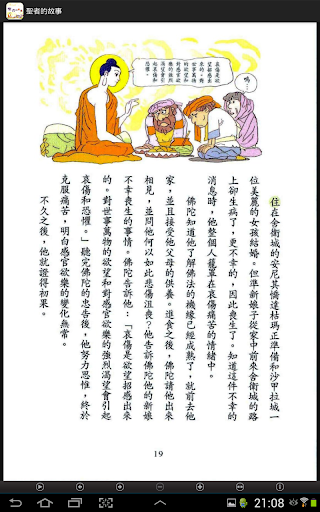 聖者的故事
嗚…
哀傷是欲
望招感去
的。對世
事萬物的
欲望和對
感官欲樂
的強烈渴
望會引起
哀傷和
恐懼。
住在舍衛城的安尼其憍達枯瑪正準備和沙甲拉城一
位美麗的女孩結婚。但準新娘子從家中前來舍衛城的路
上卻生病了，更不幸的，因此喪生了。知道這件不幸的
消息時，他整個人籠罩在哀傷痛苦的情緒中。
佛陀知道他了解佛法的機緣已經成熟了，就前去他
家，並且接受他父母的供養。進食之後，佛陀請他出來
相見，並問他何以如此悲傷沮喪？他告訴佛陀他的新娘
不幸喪生的事情。佛陀告訴他：「哀傷是欲望招感去
的。對世事萬物的欲望和對感官欲樂的強烈渴望會引起
哀傷和恐懼。」聽完佛陀的忠告後，他努力思惟，終於
克服痛苦，明白感官欲樂的變化無常。
不久之後，他就證得初果。
19
21:08